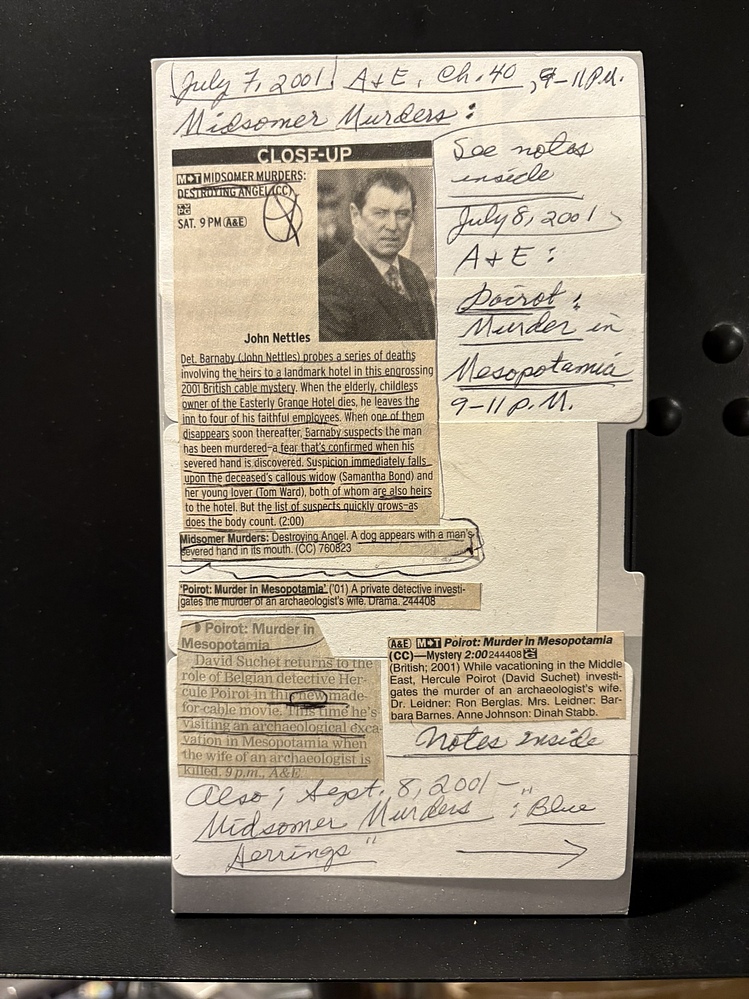 July 7, 2001 A+E, Ch. 40, 9-11 P.M.
Midsomer Murders:
CLOSE-UP
M▸T MIDSOMER MURDERS:
DESTROYING ANGEL (CC)
PG
SAT. 9 PM A&E
John Nettles
Det. Barnaby (John Nettles) probes a series of deaths
involving the heirs to a landmark hotel in this engrossing
2001 British cable mystery. When the elderly, childless
owner of the Easterly Grange Hotel dies, he leaves the
inn to four of his faithful employees. When one of them
disappears soon thereafter, Barnaby suspects the man
has been murdered—a fear that's confirmed when his
severed hand is discovered. Suspicion immediately falls
upon the deceased's callous widow (Samantha Bond) and
her young lover (Tom Ward), both of whom are also heirs
to the hotel. But the list of suspects quickly grows—as
does the body count. (2:00)
Midsomer Murders: Destroying Angel. A dog appears with a man's
severed hand in its mouth. (CC) 760823
See notes
inside
July 8, 2001
A+E:
Poirot:
Murder in
Mesopotamia
9-11 P.M.
'Poirot: Murder in Mesopotamia' ('01) A private detective investi-
gates the murder of an archaeologist's wife. Drama. 244408
Poirot: Murder in
Mesopotamia
David Suchet returns to the
role of Belgian detective Her-
cule Poirot in this new made-
for-cable movie. This time he's
visiting an archaeological exca-
vation in Mesopotamia when
the wife of an archaeologist is
killed. 9 p.m., A&E
A&E M▸T Poirot: Murder in Mesopotamia
(CC)—Mystery 2:00 244408
(British; 2001) While vacationing in the Middle
East, Hercule Poirot (David Suchet) investi-
gates the murder of an archaeologist's wife.
Dr. Leidner: Ron Berglas. Mrs. Leidner: Bar-
bara Barnes. Anne Johnson: Dinah Stabb.
Notes inside
Also; Sept. 8, 2001 - "
Midsomer Murders: Blue
Herrings"